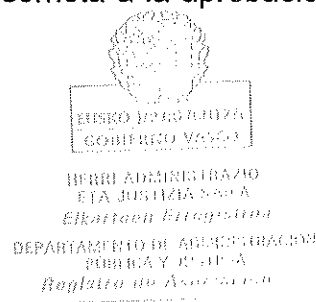 someta a la aprobació
EUSKO JAURLARITZA
GOBIERNO VASCO
HERRI ADMINISTRAZIO
ETA JUSTIZIA SAILA
Elkarteen Erregistroa
DEPARTAMENTO DE ADMINISTRACION
PÚBLICA Y JUSTICIA
Registro de Asociaciones